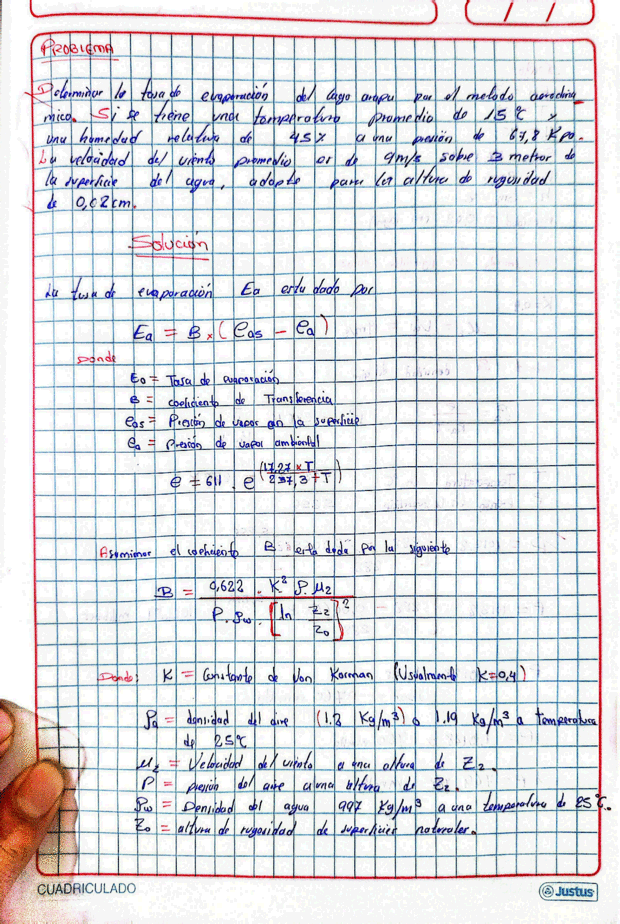 PROBLEMA
Determinar la tasa de evaporación del lago arapa por el metodo aerodina
mico. Si se tiene una temperatura promedio de 15 °C y
una humedad relativa de 45% a una presión de 67,8 Kpa.
La velocidad del viento promedio es de 9m/s sobre 3 metros de
la superficie del agua, adopte para la altura de rugosidad
de 0,02 cm.
Solución
La tasa de evaporación Ea esta dado por
Ea = B × (eas - ea)
Donde
Ea = Tasa de evaporación
B = coeficiente de Transferencia
eas = Presión de vapor en la superficie
ea = Presión de vapor ambiental
e = 611 . e^(17,27 × T / 237,3 + T)
Asumimos el coeficiente B esta dada por la siguiente
B = 0,622 . K² ρ. μ2 / P. ρw. [ln Z2/Z0]²
Donde: K = Constante de Von Karman (Usualmente K=0,4)
ρa = densidad del aire (1.2 Kg/m³) o 1.19 Kg/m³ a temperatura
de 25°C
μ2 = Velocidad del viento a una altura de Z2.
P = presión del aire a una altura de Z2.
ρw = Densidad del agua 997 Kg/m³ a una temperatura de 25°C.
Z0 = altura de rugosidad de superficies naturales.
CUADRICULADO
Justus